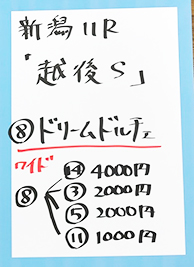 新潟11R
「越後S」
⑧ドリームドルチェ
ワイド
⑧ ⑭4000円
③2000円
⑤2000円
⑪1000円